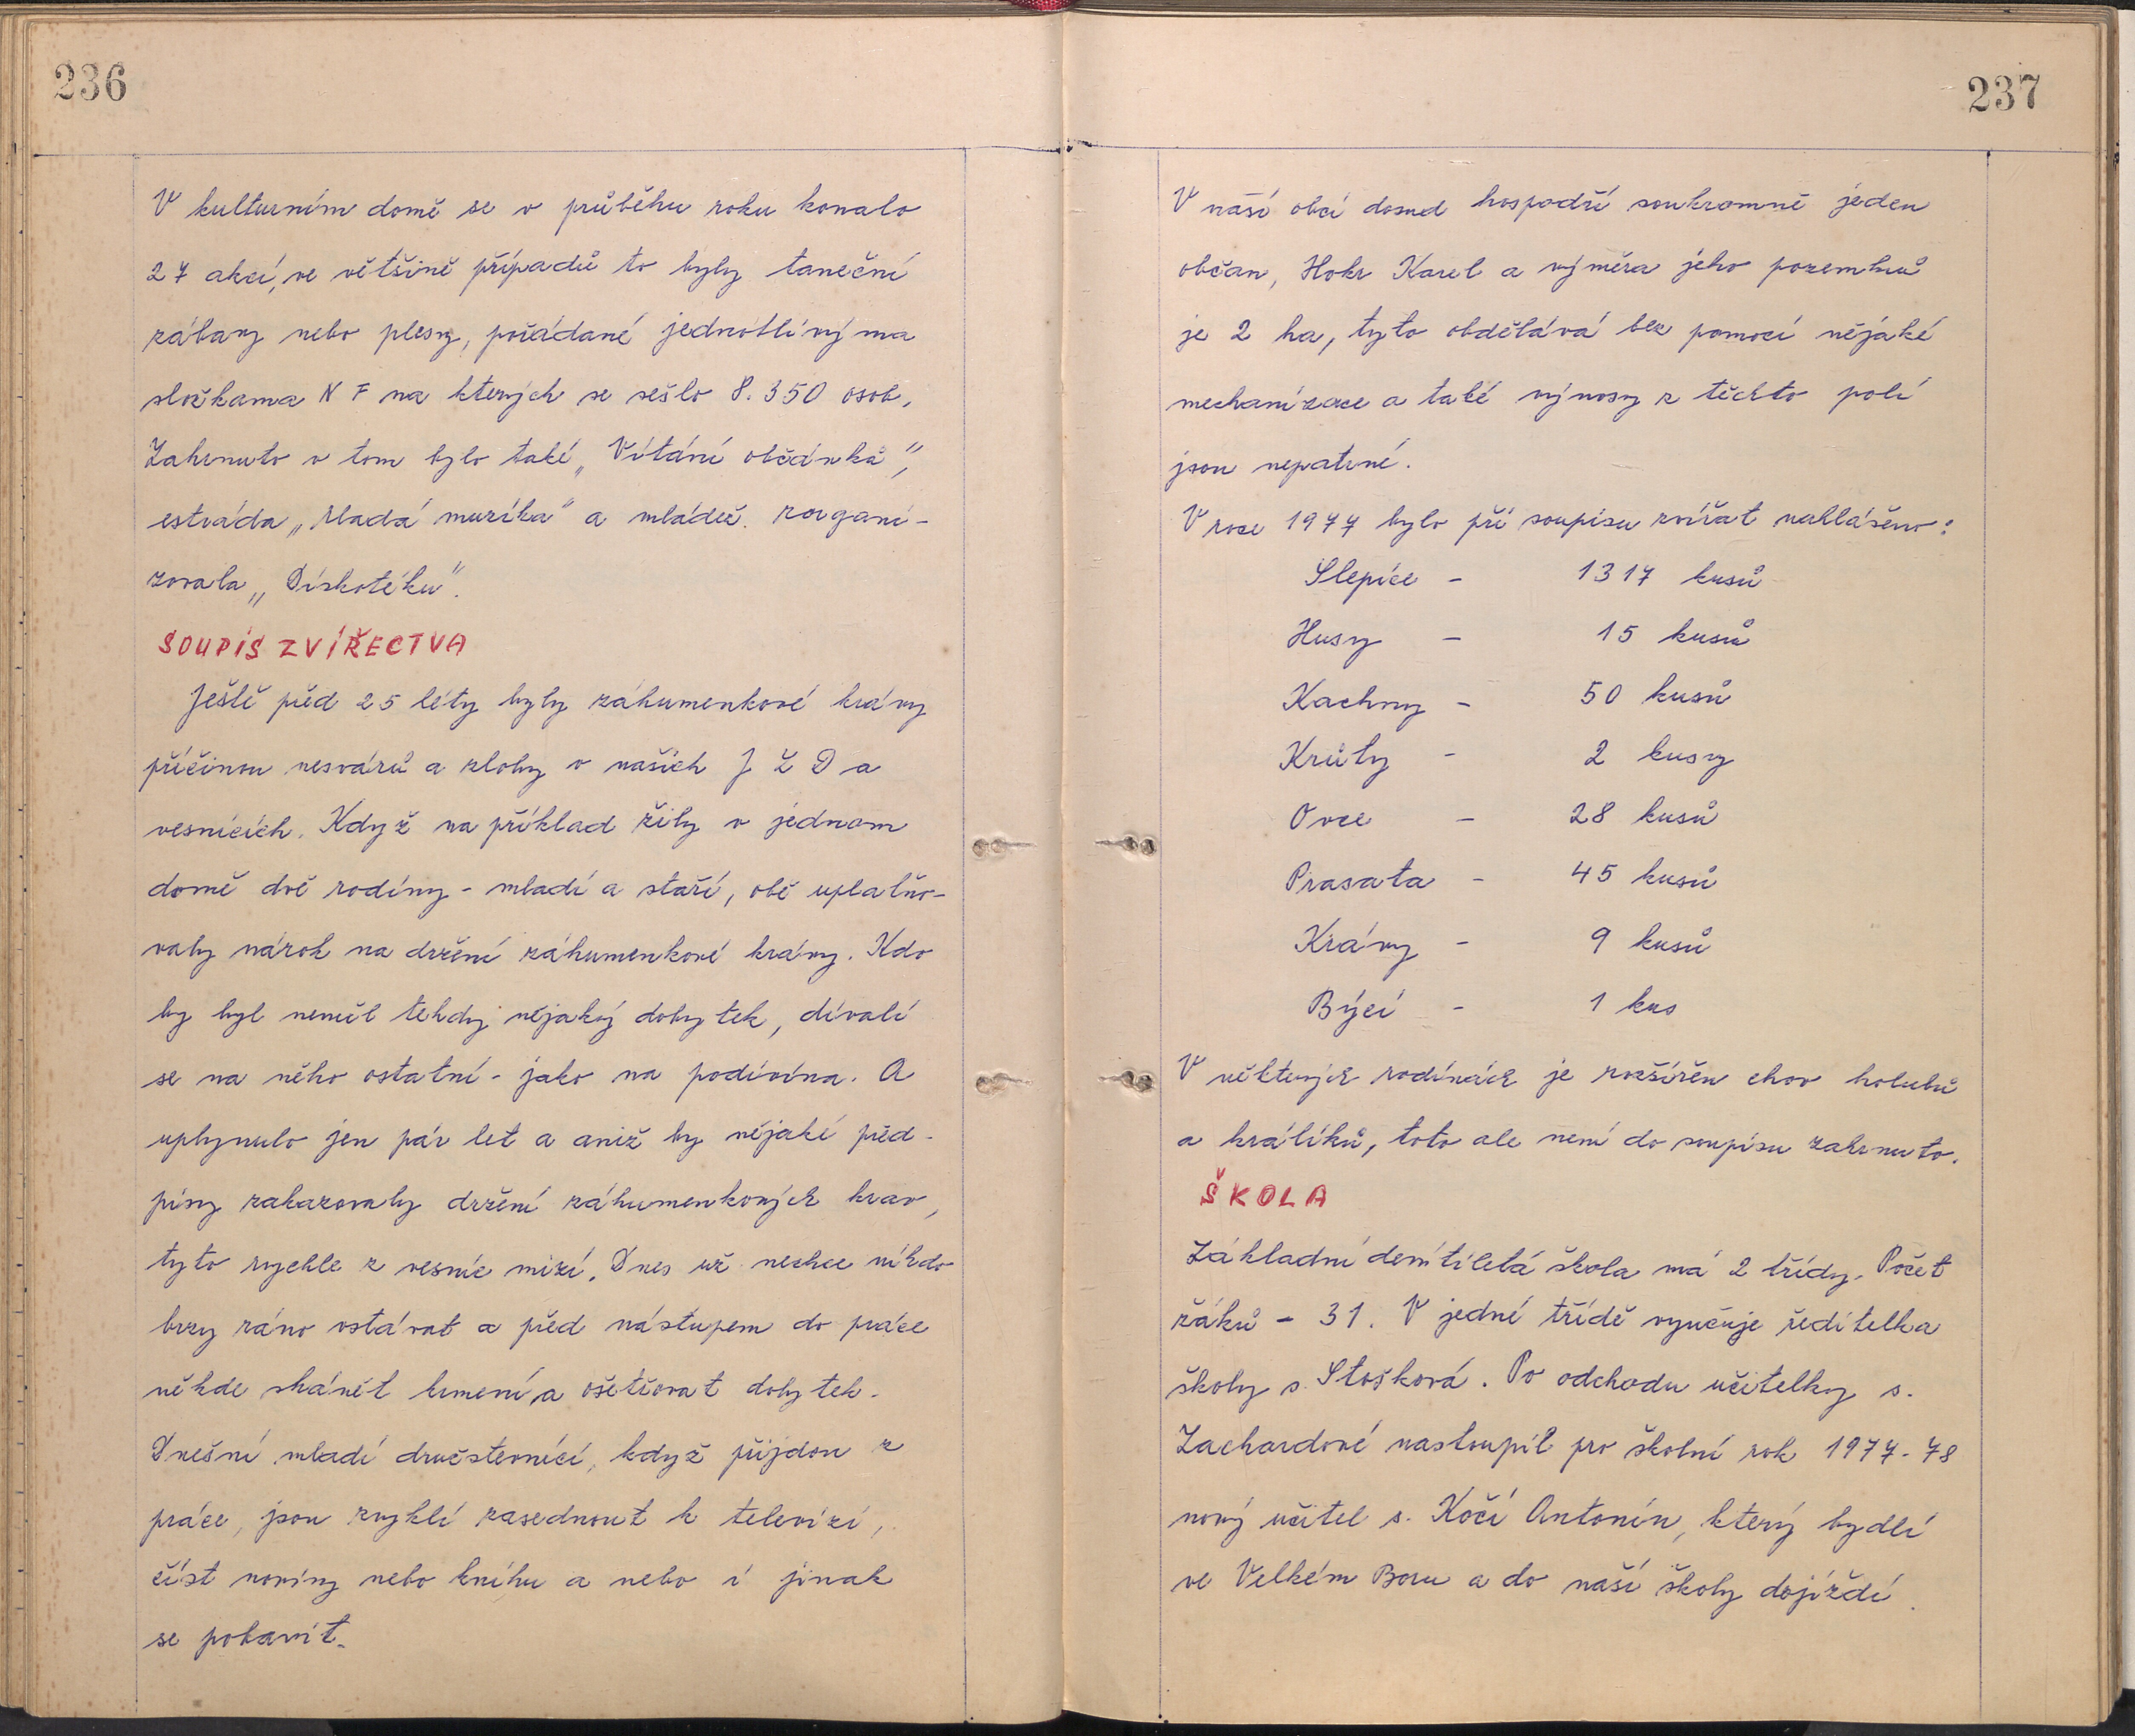 236
V kulturním domě se v průběhu roku konalo
27 akcí, ve většině případů to byly taneční
zábavy nebo plesy, pořádané jednotlivýma
složkama N F na kterých se sešlo 8.350 osob,
Zahrnuto v tom bylo také „Vítání občánků",
estráda „Mladá muzika" a mládež. zorgani-
zovala „Diskotéku".
SOUPIS ZVÍŘECTVA
Ještě před 25 léty byly záhumenkové krávy
příčinou nesvárů a zloby v našich J Z D a
vesnicích. Když na příklad žily v jednom
domě dvě rodiny - mladí a staří, obě uplatňo-
valy nárok na držení záhumenkové krávy. Kdo
by byl neměl tehdy nějaký dobytek, dívali
se na něho ostatní - jako na podivína. A
uplynulo jen pár let a aniž by nějaké před-
pisy zakazovaly držení záhumenkových krav,
tyto rychle z vesnic mizí. Dnes už nechce nikdo
brzy ráno vstávat a před nástupem do práce
někde shánět krmení a ošetřovat dobytek.
Dnešní mladí družstevníci, když přijdou z
práce, jsou zvyklí zasednout k televizi,
číst noviny nebo knihu a nebo i jinak
se pobavit.
237
V naší obci dosud hospodří soukromně jeden
občan, Hokr Karel a výměra jeho pozemků
je 2 ha, tyto obdělává bez pomoci nějaké
mechanizace a také výnosy z těchto polí
jsou nepatrné.
V roce 1977 bylo při soupisu zvířat nahlášeno:
Slepice - 1317 kusů
Husy - 15 kusů
Kachny - 50 kusů
Krůty - 2 kusy
Ovce - 28 kusů
Prasata - 45 kusů
Krávy - 9 kusů
Býci - 1 kus
V některých rodinách je rozšířen chov holubů
a králíků, toto ale není do soupisu zahrnuto.
ŠKOLA
Základní devítiletá škola má 2 třídy. Počet
žáků - 31. V jedné třídě vyučuje ředitelka
školy s. Stošková. Po odchodu učitelky s.
Zachardové nastoupil pro školní rok 1977-78
nový učitel s. Kočí Antonín, který bydlí
ve Velkém Boru a do naší školy dojíždí.